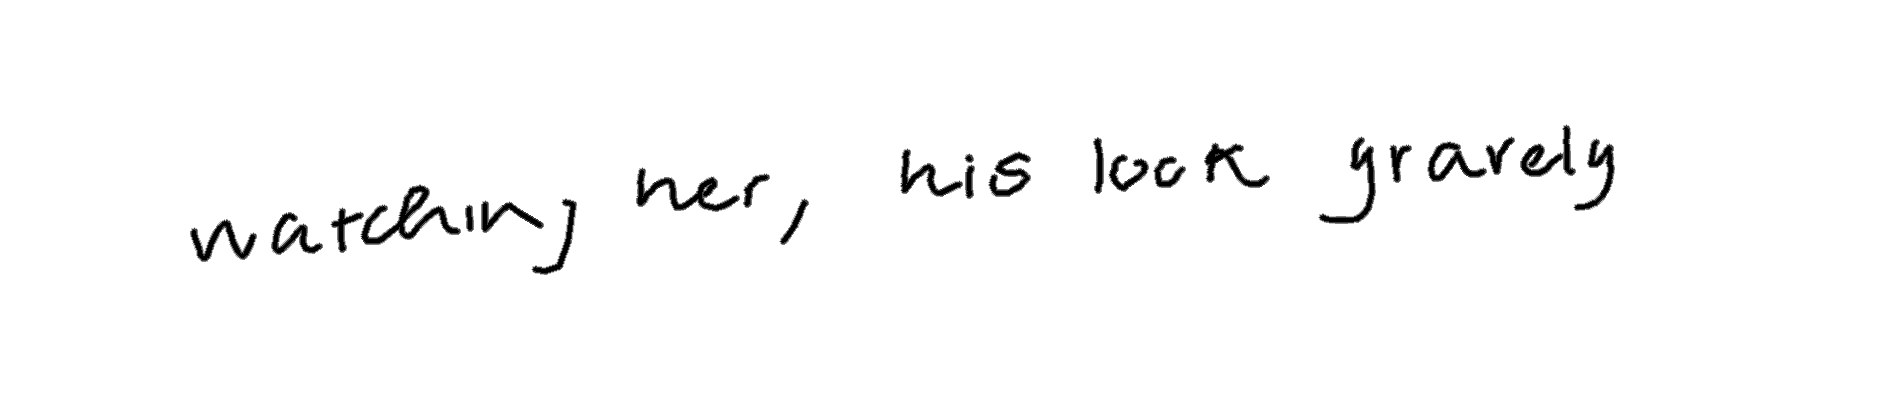 watching her, his look gravely